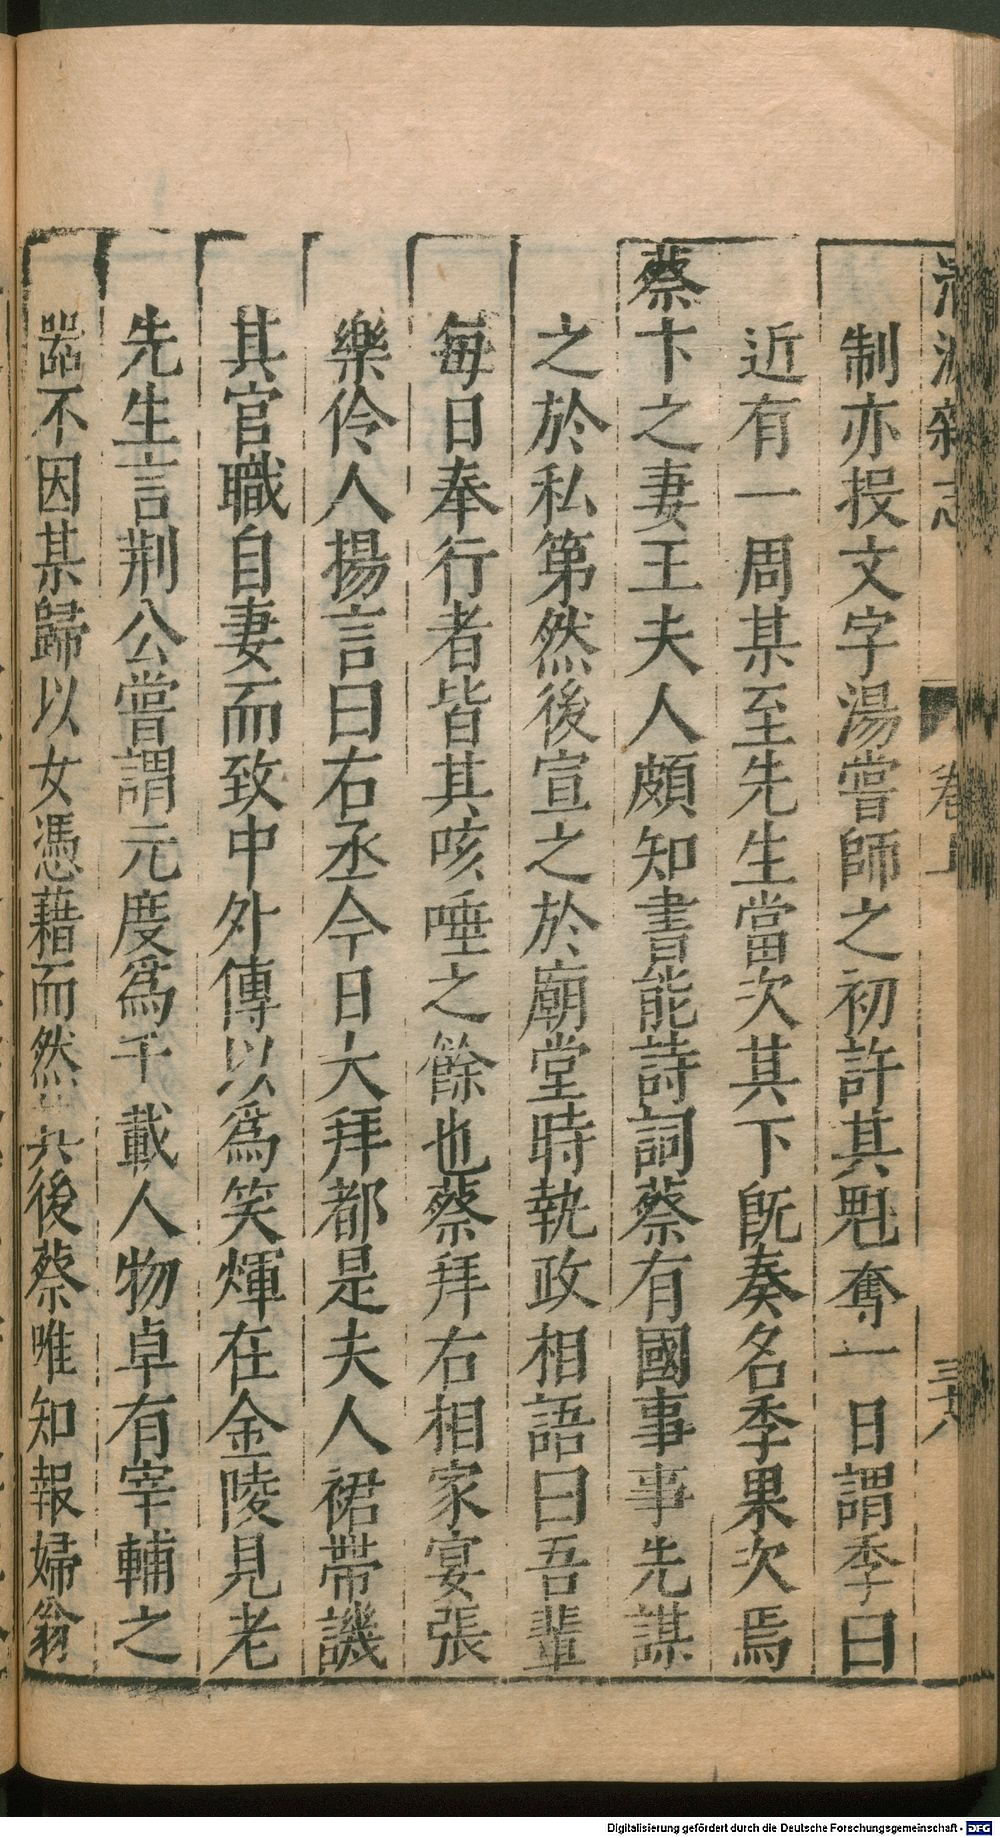 清波雜志 卷上 三十八
制亦投文字湯嘗師之初許其魁奪一日謂季曰
近有一周某至先生當次其下旣奏名季果次焉
蔡卞之妻王夫人頗知書能詩詞蔡有國事先謀
之於私第然後宣之於廟堂時執政相語曰吾輩
每日奉行者皆其咳唾之餘也蔡拜右相家宴張
樂伶人揚言曰右丞今日大拜都是夫人裙帶譏
其官職自妻而致中外傳以爲笑煇在金陵見老
先生言荆公嘗謂元度爲千載人物卓有宰輔之
器不因某歸以女憑藉而然其後蔡唯知報婦翁
Digitalisierung gefördert durch die Deutsche Forschungsgemeinschaft - DFG